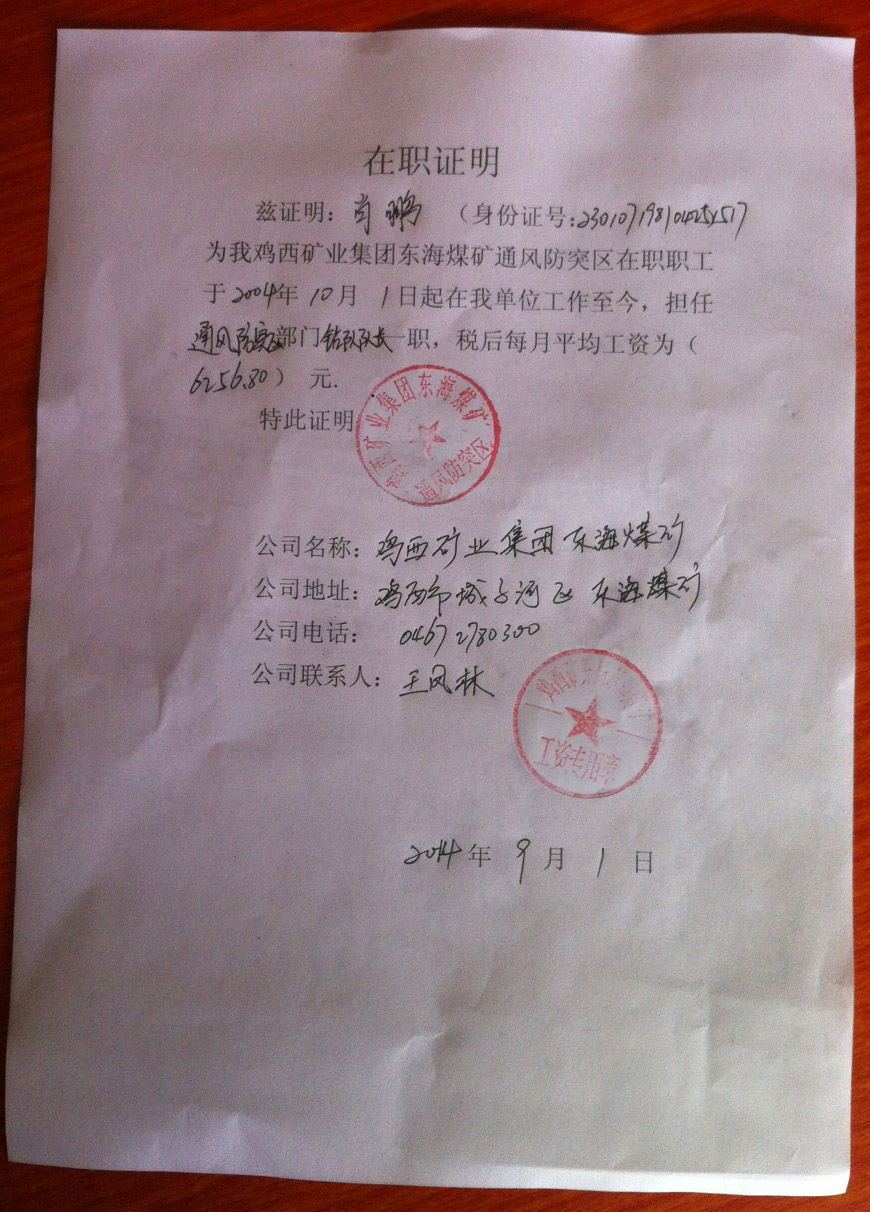 在职证明
兹证明：肖鹏 （身份证号：
为我鸡西矿业集团东海煤矿通风防突区在职职工
于2004年10月1日起在我单位工作至今，担任
通风防突区部门钻队队长一职，税后每月平均工资为（
6256.80） 元.
特此证明
鸡西矿业集团东海煤矿
通风防突区
公司名称：鸡西矿业集团东海煤矿
公司地址：鸡西市城子河区东海煤矿
公司电话： 0467 2780300
公司联系人：王凤林
工资专用章
2014年9月1日